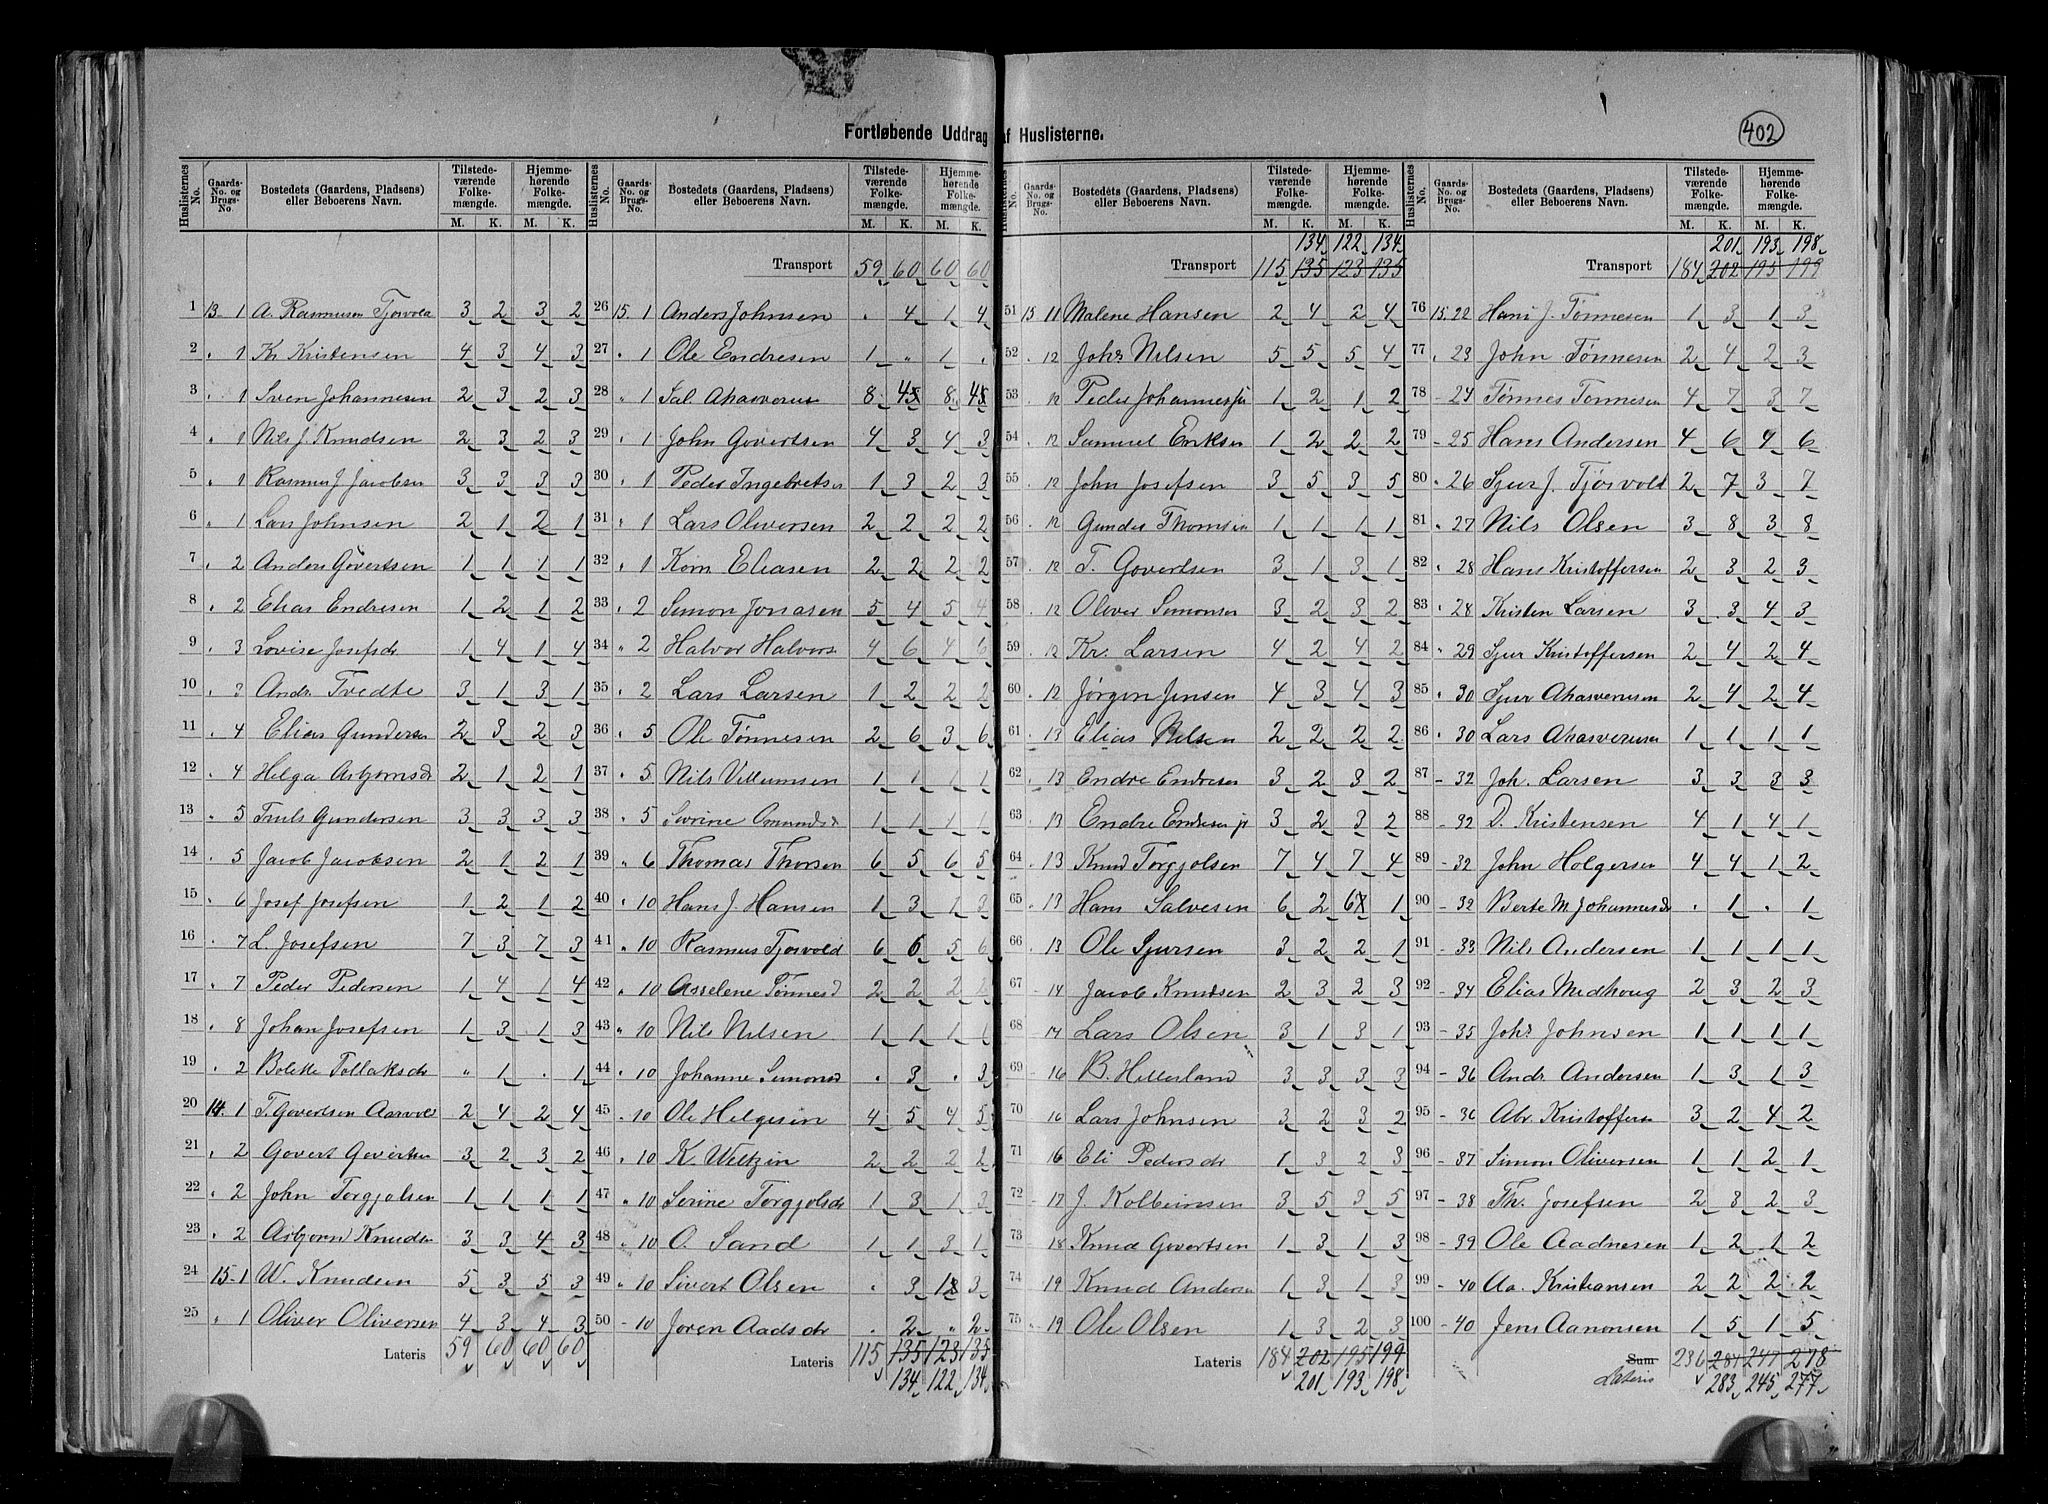 Fortløbende Uddrag af Huslisterne.
402
Huslisternes No. Gaards-No. og Brugs-No. Bostedets (Gaardens, Pladsens) eller Beboerens Navn. Tilstedeværende Folkemængde. M. K. Hjemmehørende Folkemængde. M. K.
1 13. 1 A. Rasmusen Tjosvold 3 2 3 2
2 " 1 Kr Kristensen 4 3 4 3
3 " 1 Sven Johannesen 2 3 2 3
4 " 1 Nils J. Knudsen 2 3 2 3
5 " 1 Rasmus J Jacobsen 3 3 3 3
6 " 1 Lars Johnsen 2 1 2 1
7 " 2 Anders Govertsen 1 1 1 1
8 " 2 Elias Endresen 1 2 1 2
9 " 3 Lovise Josefsdr 1 4 1 4
10 " 3 Andr. Tvedte 3 1 3 1
11 " 4 Elias Gunders 2 3 2 3
12 " 4 Helga Asbjornsdr 2 1 2 1
13 " 5 Truls Gundersen 3 3 3 3
14 " 5 Jacob Jacobsen 2 1 2 1
15 " 6 Josef Josefsen 1 2 1 2
16 " 7 L. Josefsen 7 3 7 3
17 " 7 Peder Pedersen 1 4 1 4
18 " 8 Johan Josefsen 1 3 1 3
19 " 2 Bolette Tollaksdr " 1 . 1
20 14. 1 T. Govertsen Aarvold 2 4 2 4
21 " 2 Govert Govertsen 3 2 3 2
22 " 2 John Torgjolsen 1 1 1 1
23 " 2 Asbjorn Knudsen 3 3 4 3
24 15-1 W. Knudsen 5 3 5 3
25 " 1 Oliver Oliversen 4 3 4 3
Lateris 59 60 60 60
Huslisternes No. Gaards-No. og Brugs-No. Bostedets (Gaardens, Pladsens) eller Beboerens Navn. Tilstedeværende Folkemængde. M. K. Hjemmehørende Folkemængde. M. K.
Transport 59 60 60 60
26 15. 1 Anders Johnsen . 4 1 4
27 " 1 Ole Endresen 1 " 1 .
28 " 1 Sal. Ahasverus 8 4 8 4
29 " 1 John Govertsen 4 3 4 3
30 " 1 Peder Ingebretsen 1 3 2 3
31 " 1 Lars Oliversen 2 2 2 2
32 " 1 Korn. Eliasen 2 2 2 2
33 " 2 Simon Jonasen 5 4 5 4
34 " 2 Halvor Halvors 4 6 4 6
35 " 2 Lars Larsen 1 2 2 2
36 " 5 Ole Tönnesen 2 6 3 6
37 " 5 Nils Villumsen 1 1 1 1
38 " 5 Serine Omundsdr 1 1 1 1
39 " 6 Thomas Thorsen 6 5 6 5
40 " 10 Hans J. Hansen 1 3 1 3
41 " 10 Rasmus Tjosvold 6 6 5 6
42 " 10 Asselene Tönnesd 2 2 2 2
43 " 10 Nils Nilsen 1 1 1 1
44 " 10 Johanne Simonsd . 3 . 3
45 " 10 Ole Helgesen 4 5 4 5
46 " 10 K. Weltzin 2 2 2 2
47 " 10 Serine Torgjolsdr 1 3 1 3
48 " 10 O. Sand 1 1 3 1
49 " 10 Sivert Olsen . 3 1 3
50 - 10 Joren Aadsdr . 2 " 2
Lateris 115 135 123 135
134 122 134
Huslisternes No. Gaards-No. og Brugs-No. Bostedets (Gaardens, Pladsens) eller Beboerens Navn. Tilstedeværende Folkemængde. M. K. Hjemmehørende Folkemængde. M. K.
134 122 134
Transport 115 135 123 135
51 15 11 Malene Hansen 2 4 2 4
52 . 12 Johs Nilsen 5 5 5 4
53 . 12 Peder Johannes 1 2 1 2
54 . 12 Samuel Eriksen 1 2 2 2
55 . 12 John Josefsen 3 5 3 5
56 . 12 Gunder Thomsen 1 1 1 1
57 . 12 T. Govertsen 3 1 3 1
58 . 12 Oliver Simonsen 3 2 3 2
59 . 12 Kr. Larsen 4 2 4 2
60 . 12 Jørgen Jensen 4 3 4 3
61 . 13 Elias Nilsen 2 2 2 2
62 . 13 Endre Endresen 3 2 3 2
63 . 13 Endre Endresen jr 3 2 3 2
64 . 13 Knud Torgjolsen 7 4 7 4
65 . 13 Hans Salvesen 6 2 6 1
66 . 13 Ole Sjursen 3 2 2 1
67 - 14 Jacob Knudsen 2 3 2 3
68 - 14 Lars Olsen 3 1 3 1
69 - 16 B. Hillerland 3 3 3 3
70 16 Lars Johnsen 3 2 3 2
71 16 Eli Pedersdr 1 3 2 3
72 - 17 J. Kolbeinsen 3 5 3 5
73 18 Knud Govertsen 1 3 1 3
74 19 Knud Andersen 1 3 1 3
75 " 19 Ole Olsen 1 3 2 3
Lateris 184 202 195 199
201 193 198
Huslisternes No. Gaards-No. og Brugs-No. Bostedets (Gaardens, Pladsens) eller Beboerens Navn. Tilstedeværende Folkemængde. M. K. Hjemmehørende Folkemængde. M. K.
201 193 198
Transport 184 202 195 199
76 15. 22 Hans J. Tönnesen 1 3 1 3
77 " 23 John Tönnesen 2 4 2 3
78 - 24 Tönnes Tönnesen 4 7 3 7
79 - 25 Hans Andersen 4 6 4 6
80 " 26 Sjur J. Tjosvold 2 7 3 7
81 " 27 Nils Olsen 3 8 3 8
82 " 28 Hans Kristoffersen 2 3 2 3
83 " 28 Kristen Larsen 3 3 4 3
84 " 29 Sjur Kristoffersen 2 4 2 4
85 " 30 Sjur Ahasverusen 2 4 2 4
86 " 30 Lars Ahasverusen 1 1 1 1
87 - 32 Joh. Larsen 3 3 3 3
88 - 32 D. Kristensen 4 1 4 1
89 - 32 John Holgersen 4 4 1 2
90 - 32 Berte M. Johannesdr . 1 . 1
91 - 33 Nils Andersen 1 1 1 1
92 - 34 Elias Medhoug 2 3 2 3
93 - 35 Johs Johnsen 1 1 1 1
94 - 36 Andr. Andersen 1 3 1 3
95 - 36 Abr. Kristoffersen 3 2 4 2
96 - 37 Simon Oliversen 1 1 2 1
97 - 38 Th. Josefsen 2 3 2 3
98 - 39 Ole Aadnesen 1 2 1 2
99 - 40 Aa. Kristiansen 2 2 2 2
100 - 40 Jens Aanonsen 1 5 1 5
Sum 236 284 247 278
Lateris 283 245 277